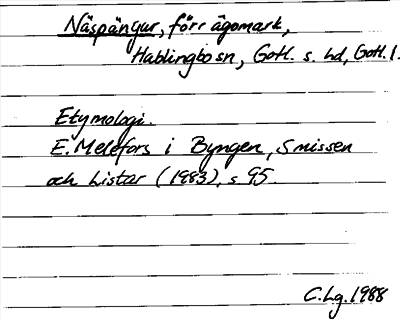 Näspängur, förr ägomark,
Hablingbo sn, Gotl. s. hd, Gotl. l.
Etymologi.
E. Melefors i Byngen, Smissen
och Listar (1983), s. 95.
C. Lg. 1988